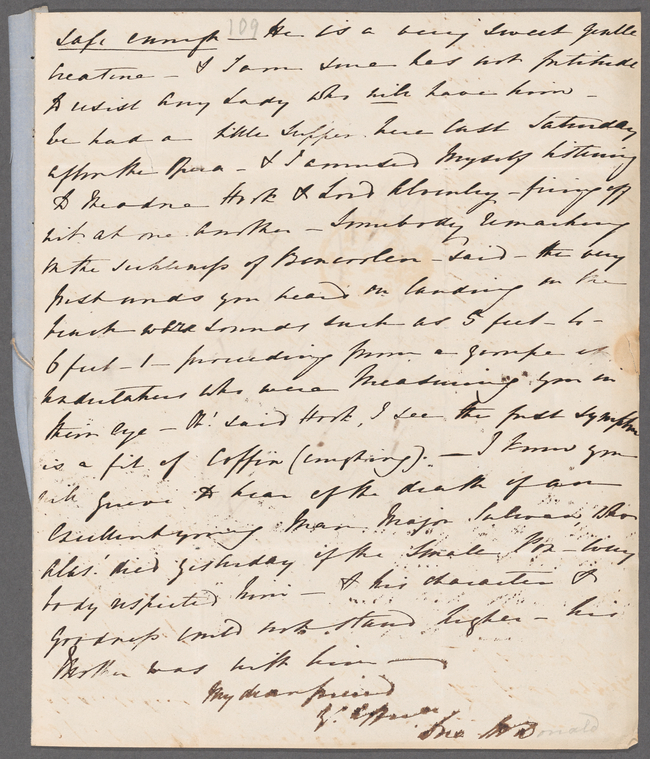 safe enough — He is a very sweet gentle
Creature — & I am sure has not fortitude
to resist any Lady who will have him —
We had a little supper here last Saturday
after the Opera — & I amused myself listening
to Theodore Hook & Lord Alvanley — firing off
wit at one another — Somebody remarking
on the sickliness of Bencoolen — said — the very
first words you heard on landing on the
beach were sounds such as 5 feet — 6 —
6 feet — 1 — proceeding from a groupe of
undertakers who were measuring you in
their eye — Oh! said Hook, I see the first symptom
is a fit of Coffin (coughing). — I know you
will grieve to hear of the death of an
Excellent young Man Major who
alas! died yesterday of the Small Pox — Every
body respected him — & his character &
goodness could not stand higher — his
Mother was with him —
My dear friend
Yr. affnate
McDonald
109